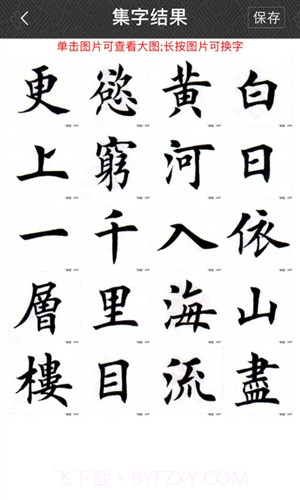 集字结果
保存
单击图片可查看大图;长按图片可换字
白日依山盡
黄河入海流
慾窮千里目
更上一層樓
飞下载·BYFZXY.COM